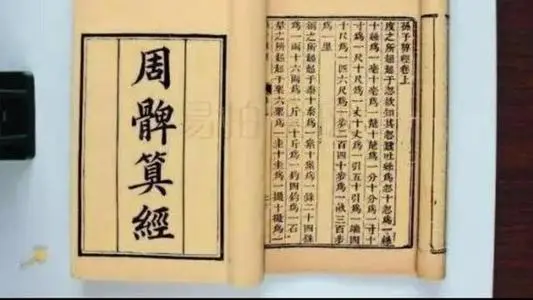 周髀算經
孫子算經卷上
度之所起起于忽欲知其忽蠶吐絲爲忽十忽爲一
絲十絲爲一毫十毫爲一氂十氂爲一分十分爲一
寸十寸爲一尺十尺爲一丈十丈爲一引五十引爲一
十尺爲一匹六尺爲一步二百四十步爲一畝三百步
爲一里
稱之所起起于黍十黍爲一絫十絫爲一銖二十四銖
爲一兩十六兩爲一斤三十斤爲一鈞四鈞爲一石
量之所起起于粟六粟爲一圭十圭爲一撮十撮